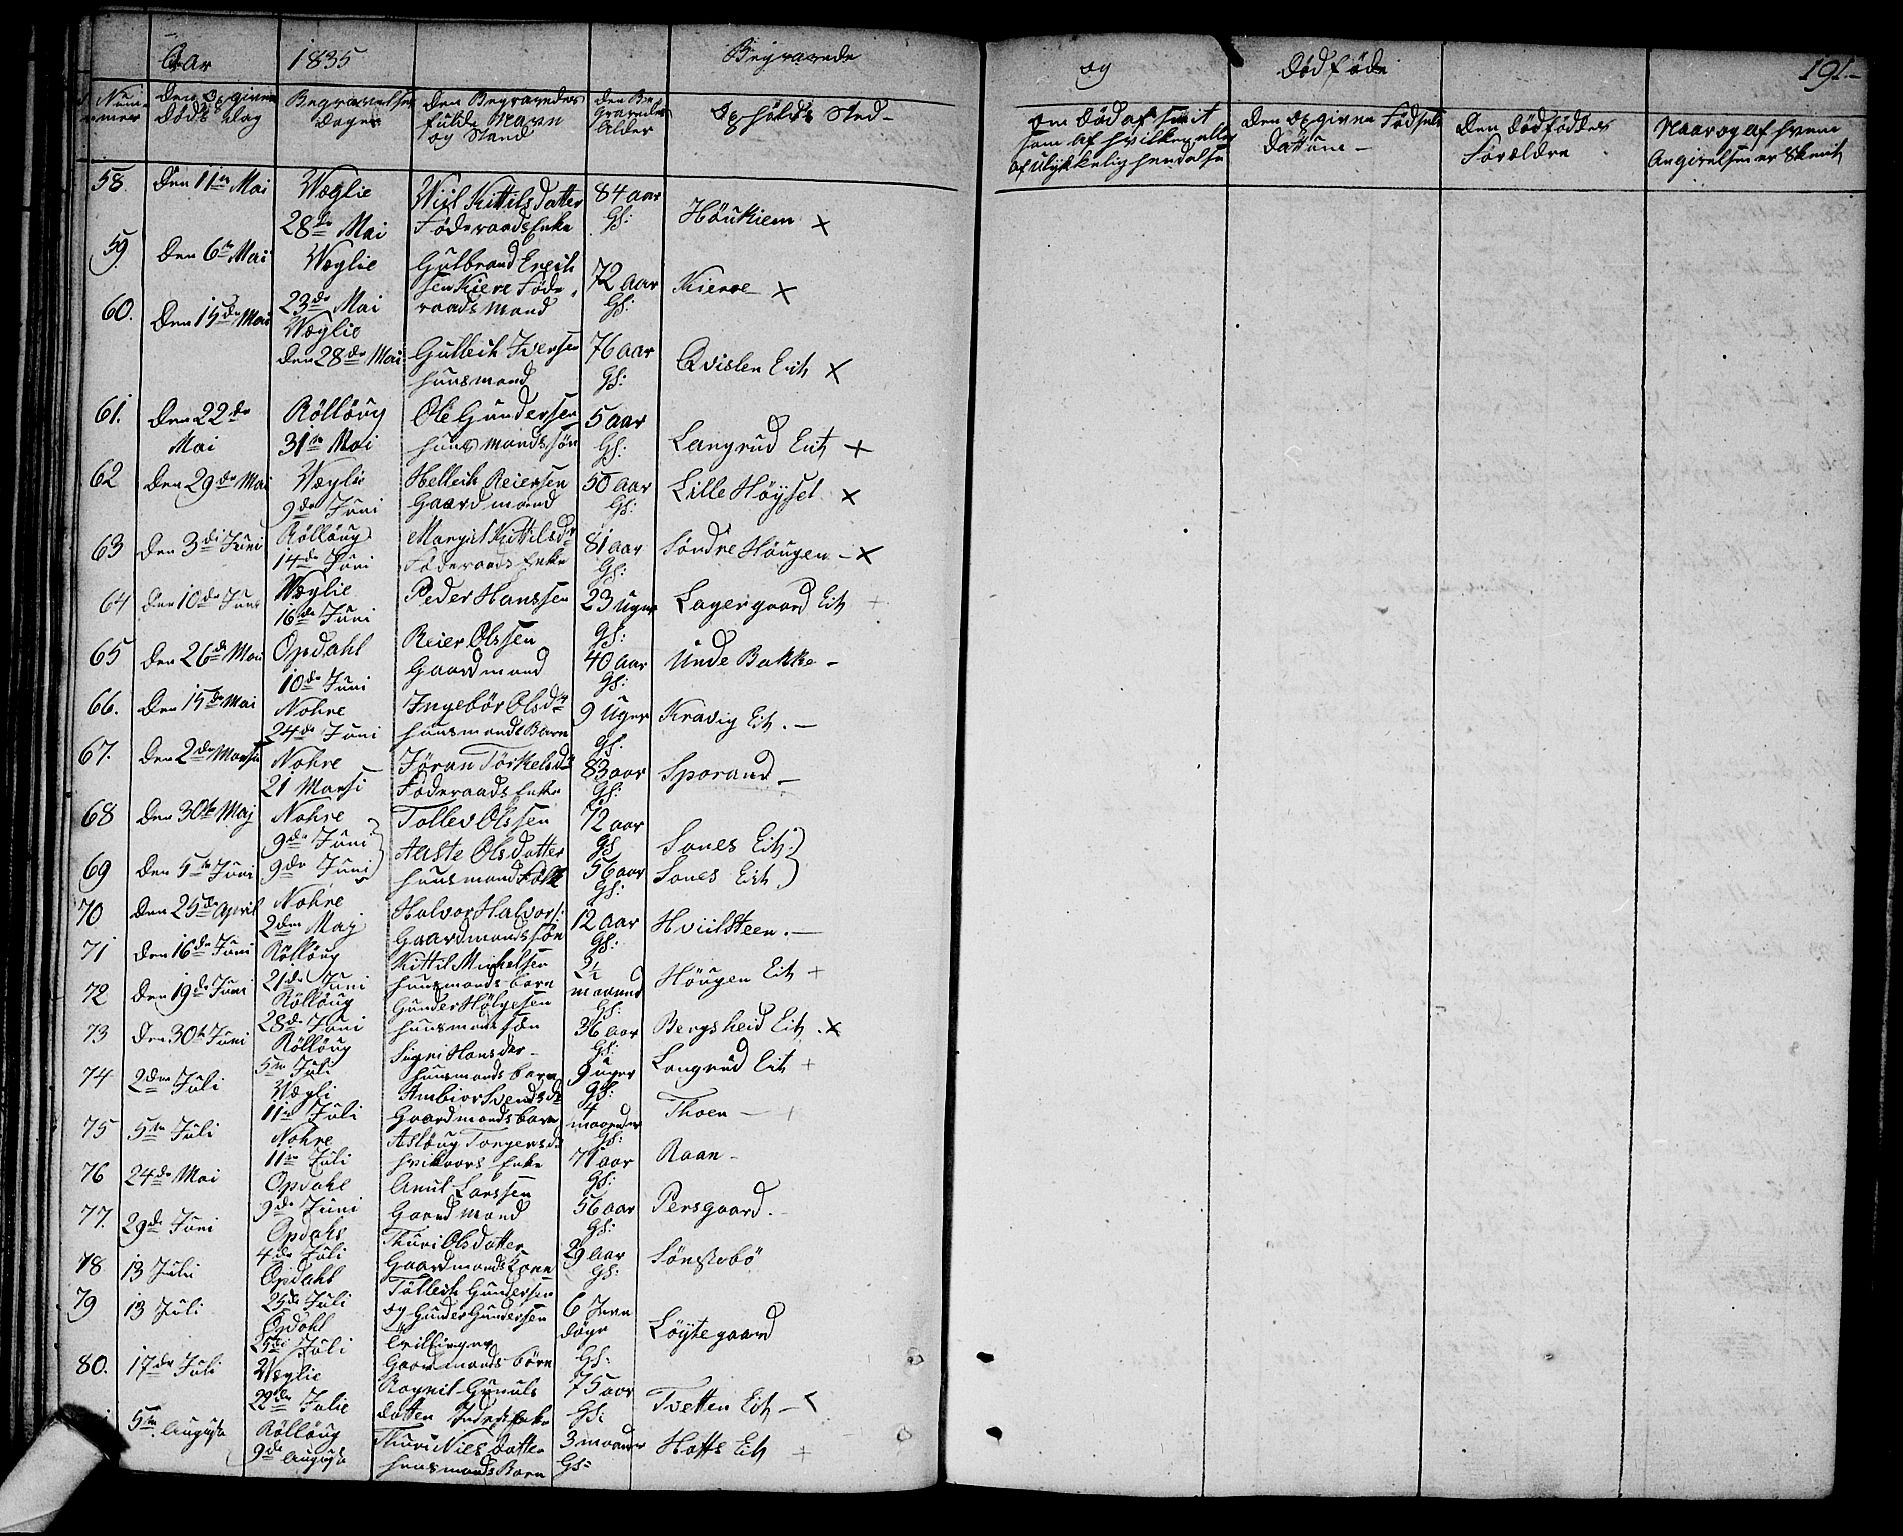 Aar 1835 Begravede og Dødføde 191.
Num- mer
Den Opgivne Døds Dag
Begravelses Dagen
Den Begravedes fulde Navn og Stand
Den Be- gravedes Alder
Opholds Sted
om Død af Smit som af hvilken eller af ulykkelig hendelse
Den opgivne Fødsels Dattune
Den dødføddes Forældre
Naar og af hvem Angivelsen er Skeet
58. Den 11te Mai Wæglie 28de Mai Kittilsdatter Føderaads Enke 84 aar Gs: Höukiem x
59. Den 6te Mai Wæglie 23de Mai Gulbrand Erich sen Kierre Føde raads Mand 72 aar Gs: Kierre x
60. Den 15de Mai Wæglie den 28de Mai Gullech Iversen huusmand 76 aar Gs: Qvislen Eit x
61. Den 22de Mai Röllöug 31te Mai Ole Gundersen huusmands søn 5 aar Gs: Langrud Eit x
62 Den 29de Mai Wæglie 9de Juni Hellech Reiersen Gaardmand 50 aar Gs: Lille Höÿset x
63 Den 3di Juni Röllöug 14de Juni Margit Kittilsdr Føderaads Enke 81 aar Gs: Søndre Höugen - x
64 Den 10de Juni Wæglie 16de Juni Peder Hanssen 23 Uger Gs: Lagergaard Eit +
65 Den 26de Mai Opdahl 10de Juni Reier Olssen Gaardmand 40 aar Gs: Unde Bakke -
66. Den 15de Mai Nohre 24de Juni Ingebör Olsdr huusmands Barn 9 Uger Gs: Kravig Eit. -
67. Den 2den Marsi Nohre 21 Marsi Jøran Törkelsdr Føderaads Enke 83 aar Gs: Sporand -
68 Den 30te Maj Nohre 9de Juni Tollev Olssen 72 aar Gs Sones Eit.
69 Den 5te Juni 9de Juni Aaste Olsdatter huusmand Folk 56 aar Gs: Sones Eit
70 Den 25de April Nohre 2den Maj Halvor Halvors: Gaardmands søn 12 aar Gs: Hviilsteen. -
71 Den 16de Juni Röllöug 21de Juni Kittil Mickelsen huusmands barn 2½ maaned Gs: Höugen Eit +
72 Den 19de Juni Röllöug 28de Juni Gunder Hølgesen huusmand søn 36 aar Gs: Bergsheid Eit. x
73 Den 30te Juni Röllöug 5te Juli Sigri Hansdr huusmands barn 9 uger Gs: Langrud Eit +
74 2den Juli Wægli 11te Juli Ambior Svendsdr Gaardmands barn 4 maaneder Gs: Thoen - +
75 5te Juli Nohre 11te Juli Aslöug Torgersdr Enke 71 aar Gs: Raan -
76 24de Mai Opdahl 9de Juni Knut Larssen Gaardmand 56 aar Gs: Persgaard. -
77. 29de Juni Opdahl 4de Juli Thuri Olsdatter Gaardmands Kone 29 aar Gs: Sönstebö
78 13 Juli Opdahl 25de Juli Tollech Gundersen
79 13 Juli Opdahl 25de Juli og Gunder Gundersen Tvillinger Gaardmands børn 6 døgn Gs: Löÿtegaard
80. 17de Juli Wæglie 22de Julie Ragnil Gunuls datter Enke 75 aar Gs: Tvetten Eit -
5te August Röllöug 9de August Thuri Niels Datter huusmands Barn 3 maaneder Gs: Hafts Eit +